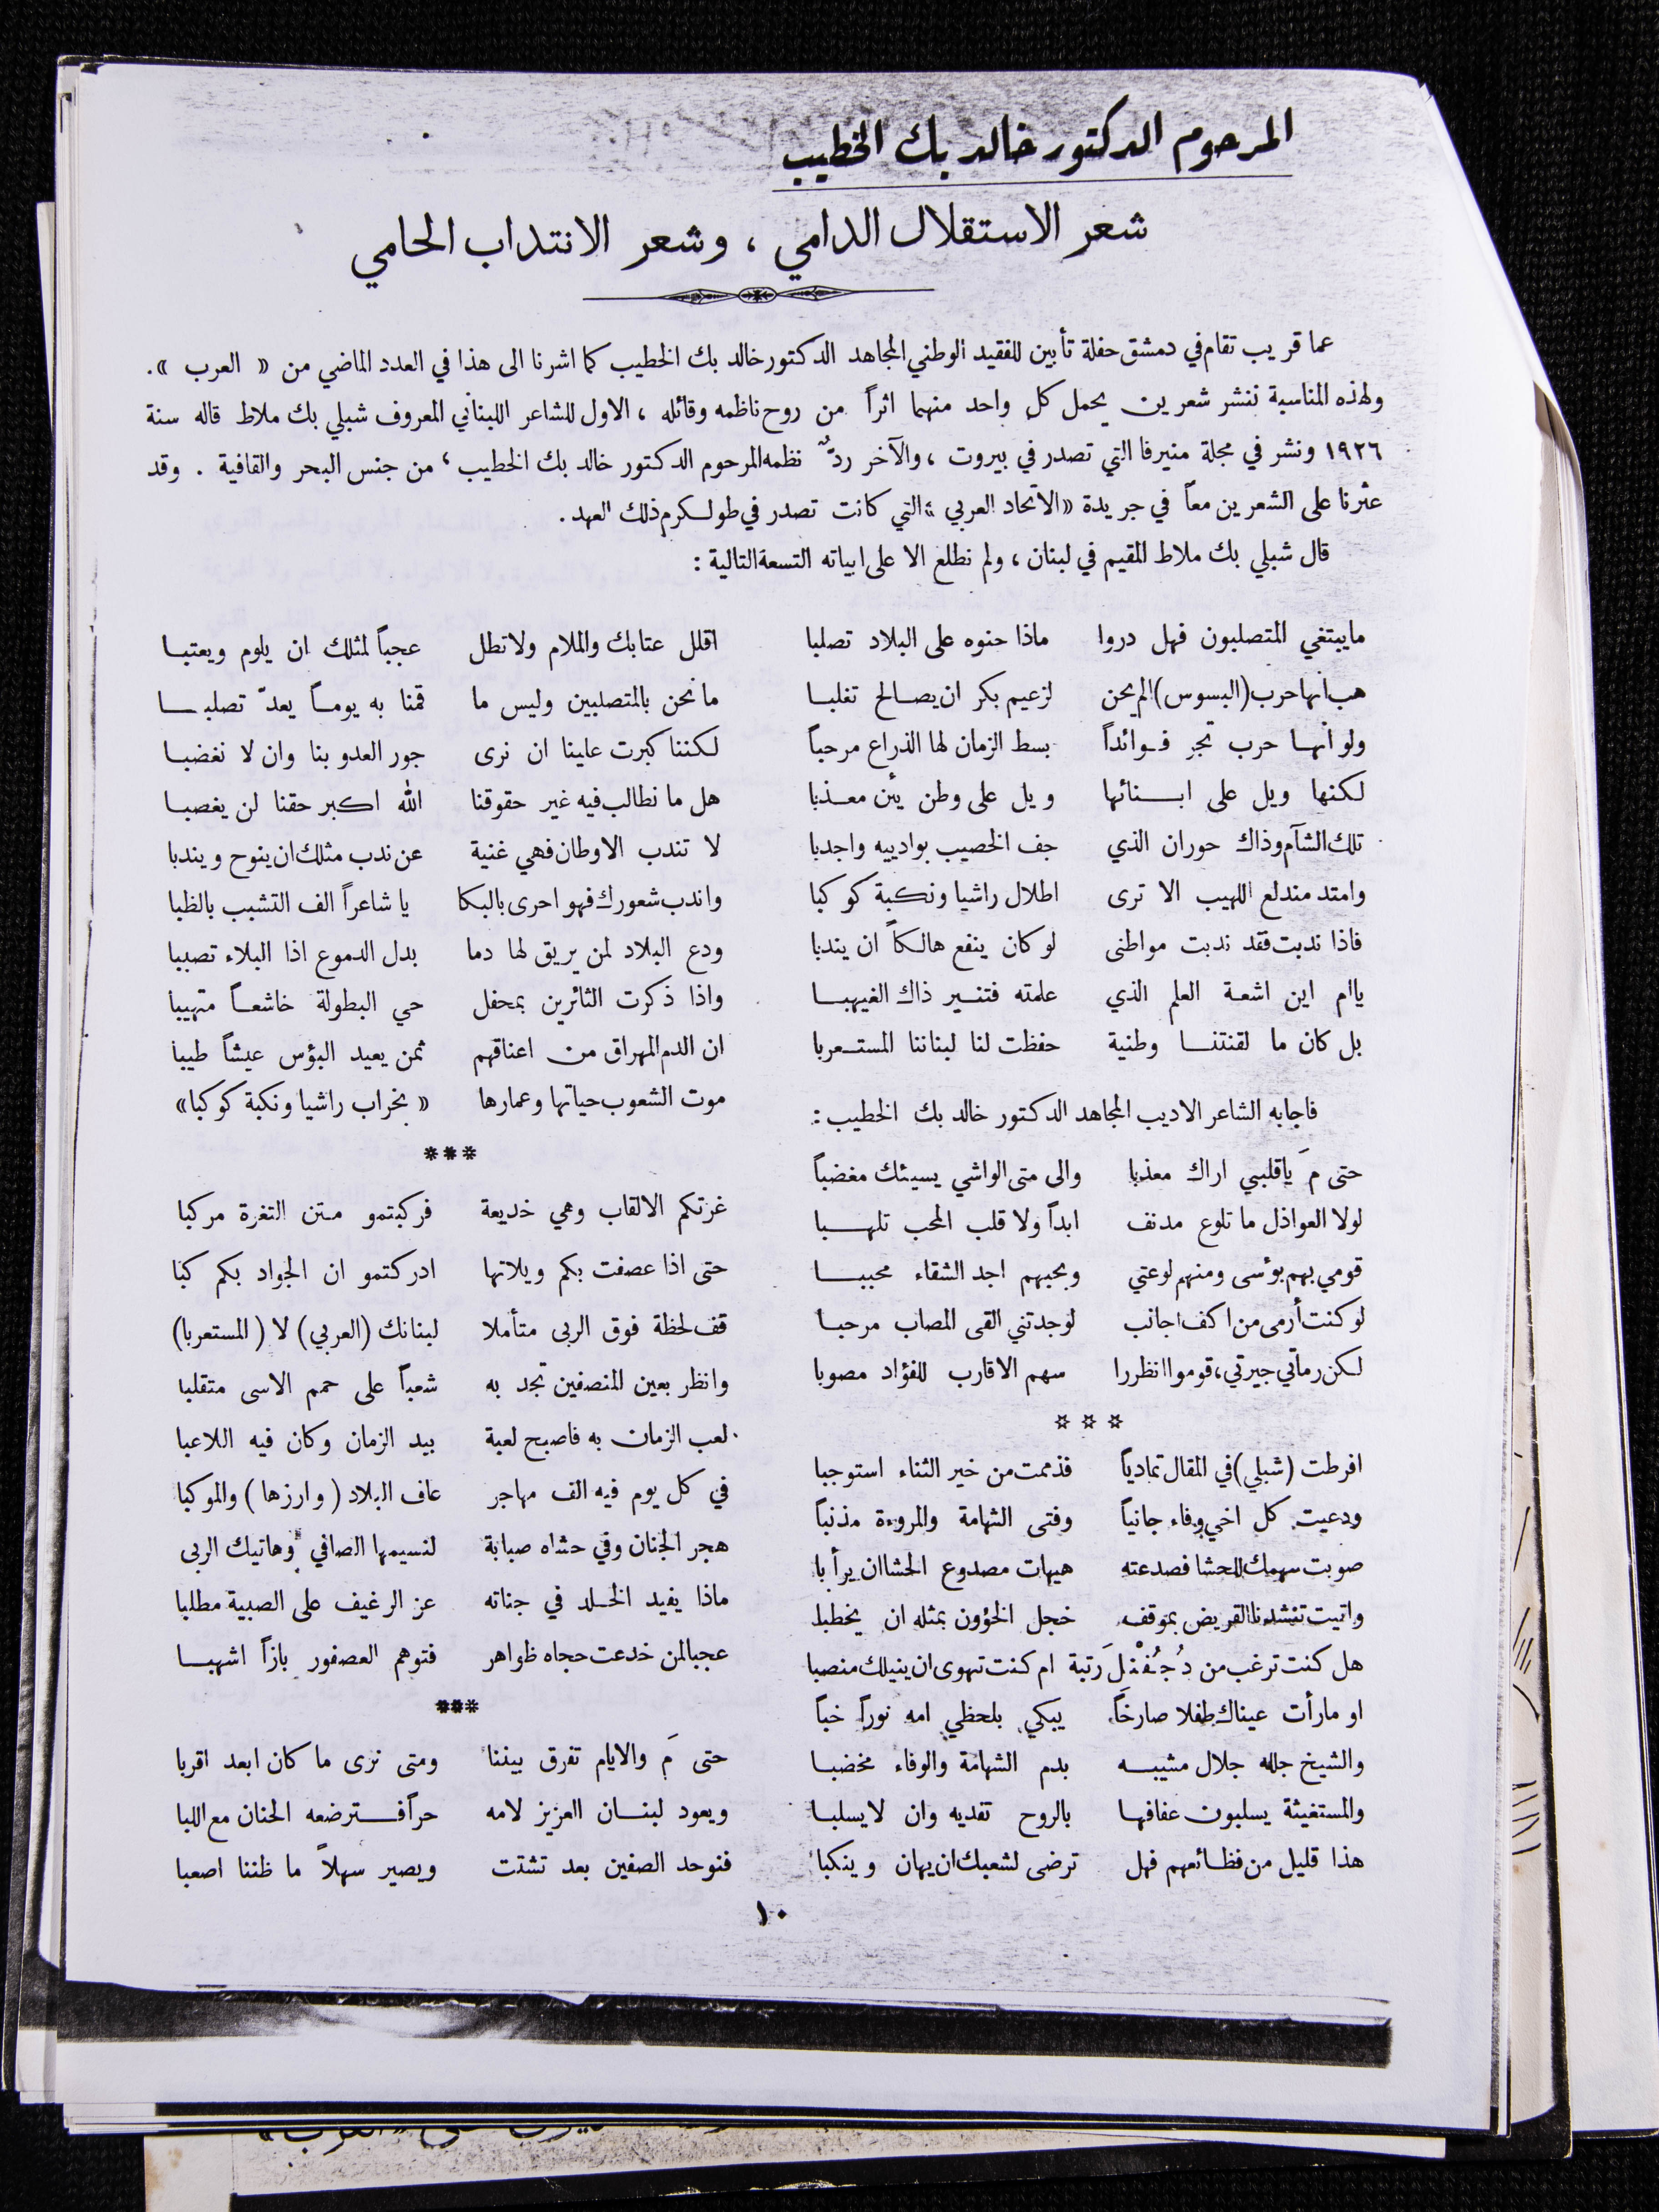 المرحوم الدكتور خالد بك الخطيب
شعر الاستقلال الدامي ، وشعر الانتداب الحامي
عما قريب تقام في دمشق حفلة تأبين للفقيد الوطني المجاهد الدكتور خالد بك الخطيب كما اشرنا الى هذا في العدد الماضي من « العرب ».
ولهذه المناسبة ننشر شعرين يحمل كل واحد منهما اثراً من روح ناظمه وقائله ، الاول للشاعر اللبناني المعروف شبلي بك ملاط قاله سنة
١٩٢٦ ونشر في مجلة منيرفا التي تصدر في بيروت ، والآخر ردٌّ نظمه المرحوم الدكتور خالد بك الخطيب ، من جنس البحر والقافية . وقد
عثرنا على الشعرين معاً في جريدة «الاتحاد العربي» التي كانت تصدر في طولكرم ذلك العهد .
قال شبلي بك ملاط المقيم في لبنان ، ولم نطلع الا على ابياته التسعة التالية :
مايبتغي المتصلبون فهل دروا ماذا جنوه على البلاد تصلبا
هب انها حرب (البسوس) الم يحن لزعيم بكر ان يصالح تغلبا
ولو انها حرب تجر فوائداً بسط الزمان لها الذراع مرحباً
لكنها ويل على ابنائها ويل على وطن يئن معذبا
تلك الشآم وذاك حوران الذي جف الخصيب بوادييه واجدبا
وامتد مندلع اللهيب الا ترى اطلال راشيا ونكبة كوكبا
فاذا ندبت فقد ندبت مواطني لو كان ينفع هالكاً ان يندبا
ياام اين اشعة العلم الذي علمته فتنير ذاك الغيهبا
بل كان ما لقنتنا وطنية حفظت لنا لبناننا المستعربا
فاجابه الشاعر الاديب المجاهد الدكتور خالد بك الخطيب :
حتى مَ ياقلبي اراك معذبا والى متى الواشي يسيئك مغضباً
لولا العواذل ما تلوع مدنف ابداً ولا قلب المحب تلهبا
قومي بهم بؤسى ومنهم لوعتي وبحبهم اجد الشقاء محببا
لو كنت أرمى من اكف اجانب لوجدتني القى المصاب مرحبا
لكن رماني جيرتي، قوموا انظروا سهم الاقارب للفؤاد مصوبا
***
افرطت (شبلي) في المقال تمادياً فذممت من خير الثناء استوجبا
ودعيت كل اخي وفاء جانياً وفتى الشهامة والمروءة مذنباً
صوبت سهمك للحشا فصدعته هيهات مصدوع الحشا ان يرأبا
واتيت تنشدنا القريض بموقف خجل الخؤون بمثله ان يخطبا
هل كنت ترغب من رتبة ام كنت تهوى ان ينيلك منصبا
او مارأت عيناك طفلا صارخاً يبكي بلحظي امه نوراً خبا
والشيخ جلله جلال مشيبه بدم الشهامة والوفاء مخضبا
والمستغيثة يسلبون عفافها بالروح تفديه وان لايسلبا
هذا قليل من فظائعهم فهل ترضى لشعبك ان يهان وينكبا
اقلل عتابك والملام ولا تطل عجباً لمثلك ان يلوم ويعتبا
ما نحن بالمتصلبين وليس ما قمنا به يوماً يعدّ تصلبا
لكننا كبرت علينا ان نرى جور العدو بنا وان لا نغضبا
هل ما نطالب فيه غير حقوقنا الله اكبر حقنا لن يغصبا
لا تندب الاوطان فهي غنية عن ندب مثلك ان ينوح ويندبا
واندب شعورك فهو احرى بالبكا يا شاعراً الف التشبب بالظبا
ودع البلاد لمن يريق لها دما بدل الدموع اذا البلاء تصببا
واذا ذكرت الثائرين بمحفل حي البطولة خاشعاً متهيبا
ان الدم المهراق من اعناقهم ثمن يعيد البؤس عيشاً طيبا
موت الشعوب حياتها وعمارها « بخراب راشيا ونكبة كوكبا»
***
غرتكم الالقاب وهي خديعة فركبتمو متن التغرة مركبا
حتى اذا عصفت بكم ويلاتها ادركتمو ان الجواد بكم كبا
قف لحظة فوق الربى متأملا لبنانك (العربي) لا (المستعربا)
وانظر بعين المنصفين تجد به شعباً على حمم الاسى متقلبا
لعب الزمان به فاصبح لعبة بيد الزمان وكان فيه اللاعبا
في كل يوم فيه الف مهاجر عاف البلاد (وارزها) والموكبا
هجر الجنان وفي حشاه صبابة لنسيمها الصافي وهاتيك الربى
ماذا يفيد الخلد في جناته عز الرغيف على الصبية مطلبا
عجبا لمن خدعت حجاه ظواهر فتوهم العصفور بازاً اشهبا
***
حتى مَ والايام تفرق بيننا ومتى نرى ما كان ابعد اقربا
ويعود لبنان العزيز لامه حراً فترضعه الحنان مع اللبا
فنوحد الصفين بعد تشتت ويصير سهلاً ما ظننا اصعبا
١٠